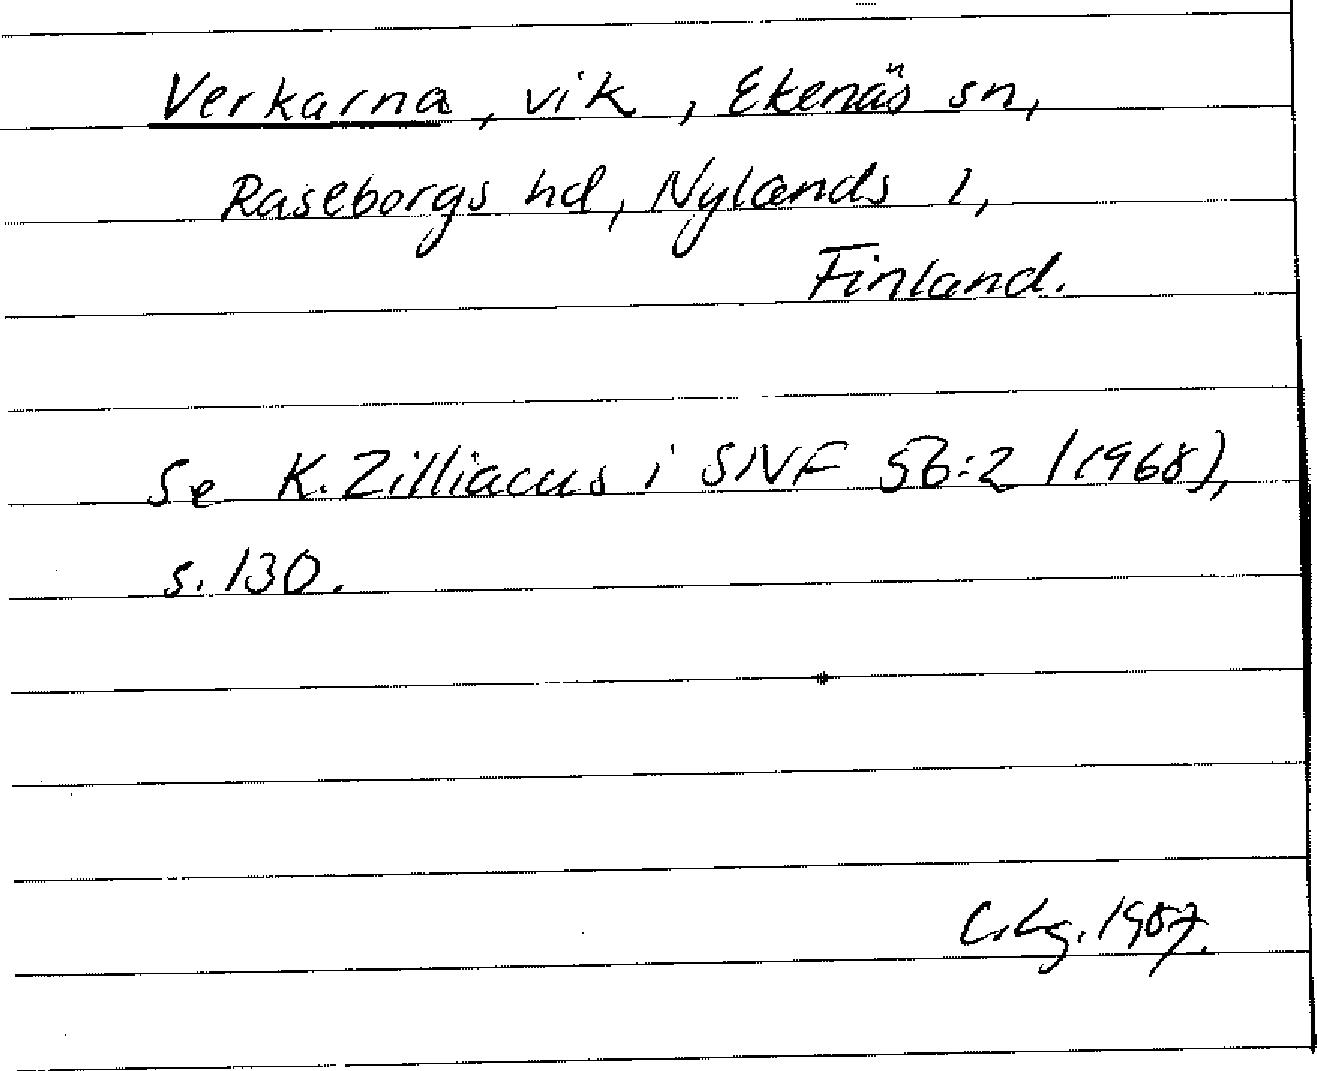 Verkarna, vik, Ekenäs sn,
Raseborgs hd, Nylands l,
Finland.
Se K. Zilliacus i SNF 56:2 (1968),
s. 130.
C.Lg. 1987.